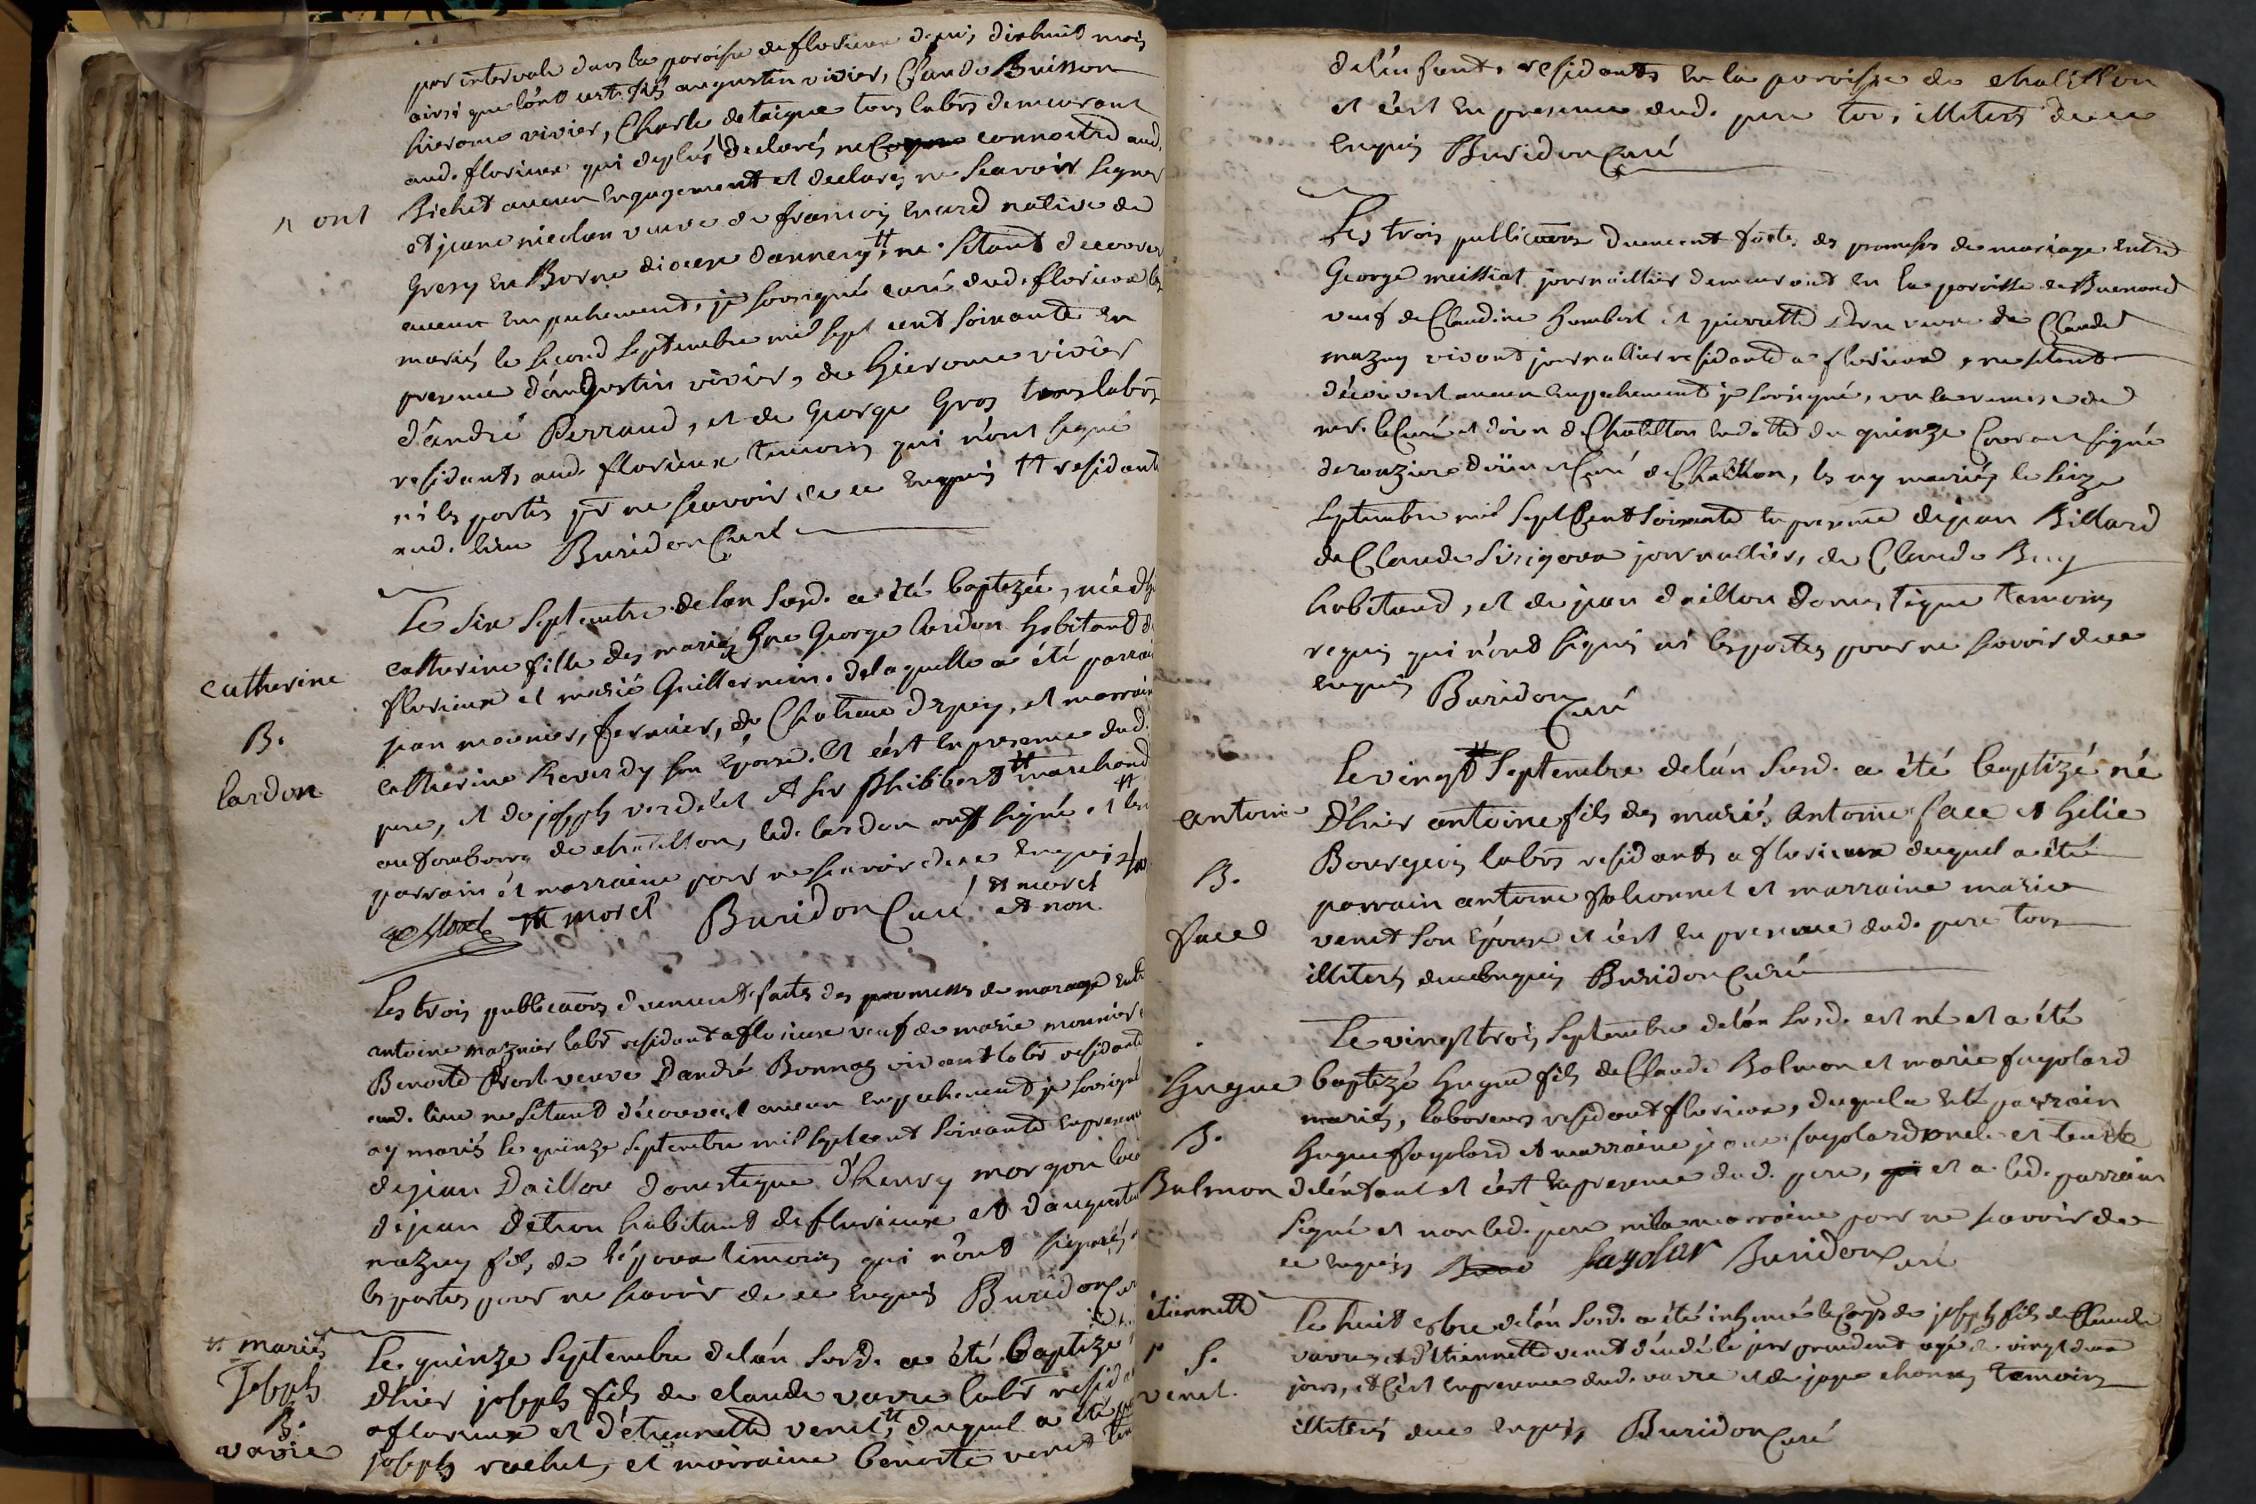 par intervale dans la paroisse de florieux depuis dixhuit mois
ainsi que l'ont certifiés augustin vivier, Claude Buisson
hierome vivier, Charle detaigue tous labrs demeurant
aud. florieux qui deplus declarés ne connoitre aud.
^ ont
Bichet aucun Engagement et declarés ne scavoir signer
et jeane nicolas veuve de francois Evrard native de
Gresy En Borne diocese dannecy tt ne setant decouvert
aucun Empechement, je soussigné curé dud. florieux les
mariés le second septembre mil sept cent soixante En
presence d'augustin vivier, de hierome vivier
d'andré Perraud, et de George Gros tous labrs
residants aud. florieux temoins qui n'ont signé
ni les parties pr ne scavoir de ce Enquis tt residante
aud. lieu Buridon Curé
Le six septembre de lan susd. a été baptizée, née d'hier
catherine
catherine fille des mariés George lardon habitant de
florieux et marie Guillermin. de laquelle a été parrain
B.
jean meunier, fermier, de Chateau d', et marraine
lardon
catherine Reverdy son Epouse. Et c'est En presence dud.
pere, et de joseph verdelet et sir Phibbert tt marchand
au fombourg de chatillon, led. lardon ont signé et les
parrain et marraine pour ne scavoir de ce Enquis
Morel tt morel Buridon Curé tt morel et non
Les trois publicaons duement faites des promesses de mariage Entre
antoine maznier labr residant a florieux veuf de marie monnier et
Benoite Prost veuve D'andré Bonnaz vivant labr residante
aud. lieu ne setant découvert aucun Empechement je soussigné
ay mariés le quinze septembre mil sept cent soixante En presence
de jean Daillon domestique d'henry morgon
de jean detion habitant de florieux et d'augustin
mazuy fils de témoins qui n'ont signés
les parties pour ne scavoir de ce Enquis Buridon Curé
tt mariés
Le quinze septembre de lán susd. a été Baptizé
Joseph
d'hier joseph fils de claude varre labr resid
B.
a florieux et d'étiennette venet tt duquel a été
varre
joseph rachet, et marraine benoite venet
de l'enfant, residants En la paroisse de chatillon
et c'est En presence dud. pere tous illiterés de ce
Enquis Buridon Curé
Les trois publicaons duement faites des promesses de mariage Entre
George meissiat journaillier demeurant En la paroisse de Buenand
veuf de Claudine humbert et pierrette veuve de Claude
mazuy vivant journallier residante a florieux, ne setant
découvert aucun Empechement je soussigné, vu la remise de
mr. le Curé et doien de Chatillon En datte du quinze Courant signé
derouziere doïen et Curé de Chatillon, les ay mariés le seize
septembre mil sept Cent soixante En presence de jean Billard
de Claude journallier, de Claude Buy
habitand, et de jean daillon domestique temoins
requis qui n'ont signés ni les parties pour ne scavoir de ce
Enquis Buridon Curé
Le vingt septembre de lán susd. a été baptizé né
antoine
d'hier antoine fils des mariés Antoine face et hélie
Bourgeois labrs residants a florieux duquel a été
B.
parrain antoine falconnet et marraine marie
face
venet son Epouse et c'est En presence dud. pere tous
illiterés de ce Enquis Buridon Curé
Le vingt trois septembre de lán susd. est né et a été
hugue
baptizé hugue fils de Claude Balmon et marie fayolard
mariés, laboreurs residant florieux, duquel a Eté parrain
B.
hugue fayolard et marraine jeane fayolard oncle et tante
Balmon
de lénfant et c'est En presence dud. pere, et a led. parrain
signé et non led. pere ni la marraine pour ne scavoir de
ce Enquis fayolar Buridon Curé
étiennette
Le huit de lán susd. a été inhumé le Corps de joseph fils de Claude
S.
varre et d'étiennette venet décédé le jour precedent agé de vingt deux
venet.
jours, et C'est En presence dud. varre et de jaque temoins
illiterés de ce Enquis Buridon Curé